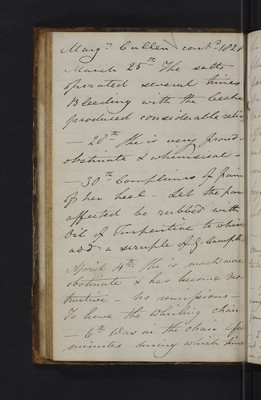 Marg.t Cullen cont.d 1821
March 25th The salts
operated several times
Bleeding with the Leeches
produced considerable relief
— 28th She is very proud
obstinate & whimsical —
— 30th Complains of pain
of her heel — Let the part
affected be rubbed with
Oil of Turpentine to which
add a scruple of G. Camph.
April 4th She is much more
obstinate & has become des
tructive — No remissions —
To have the whirling chair
— 6th Was in the chair a few
minutes during which time